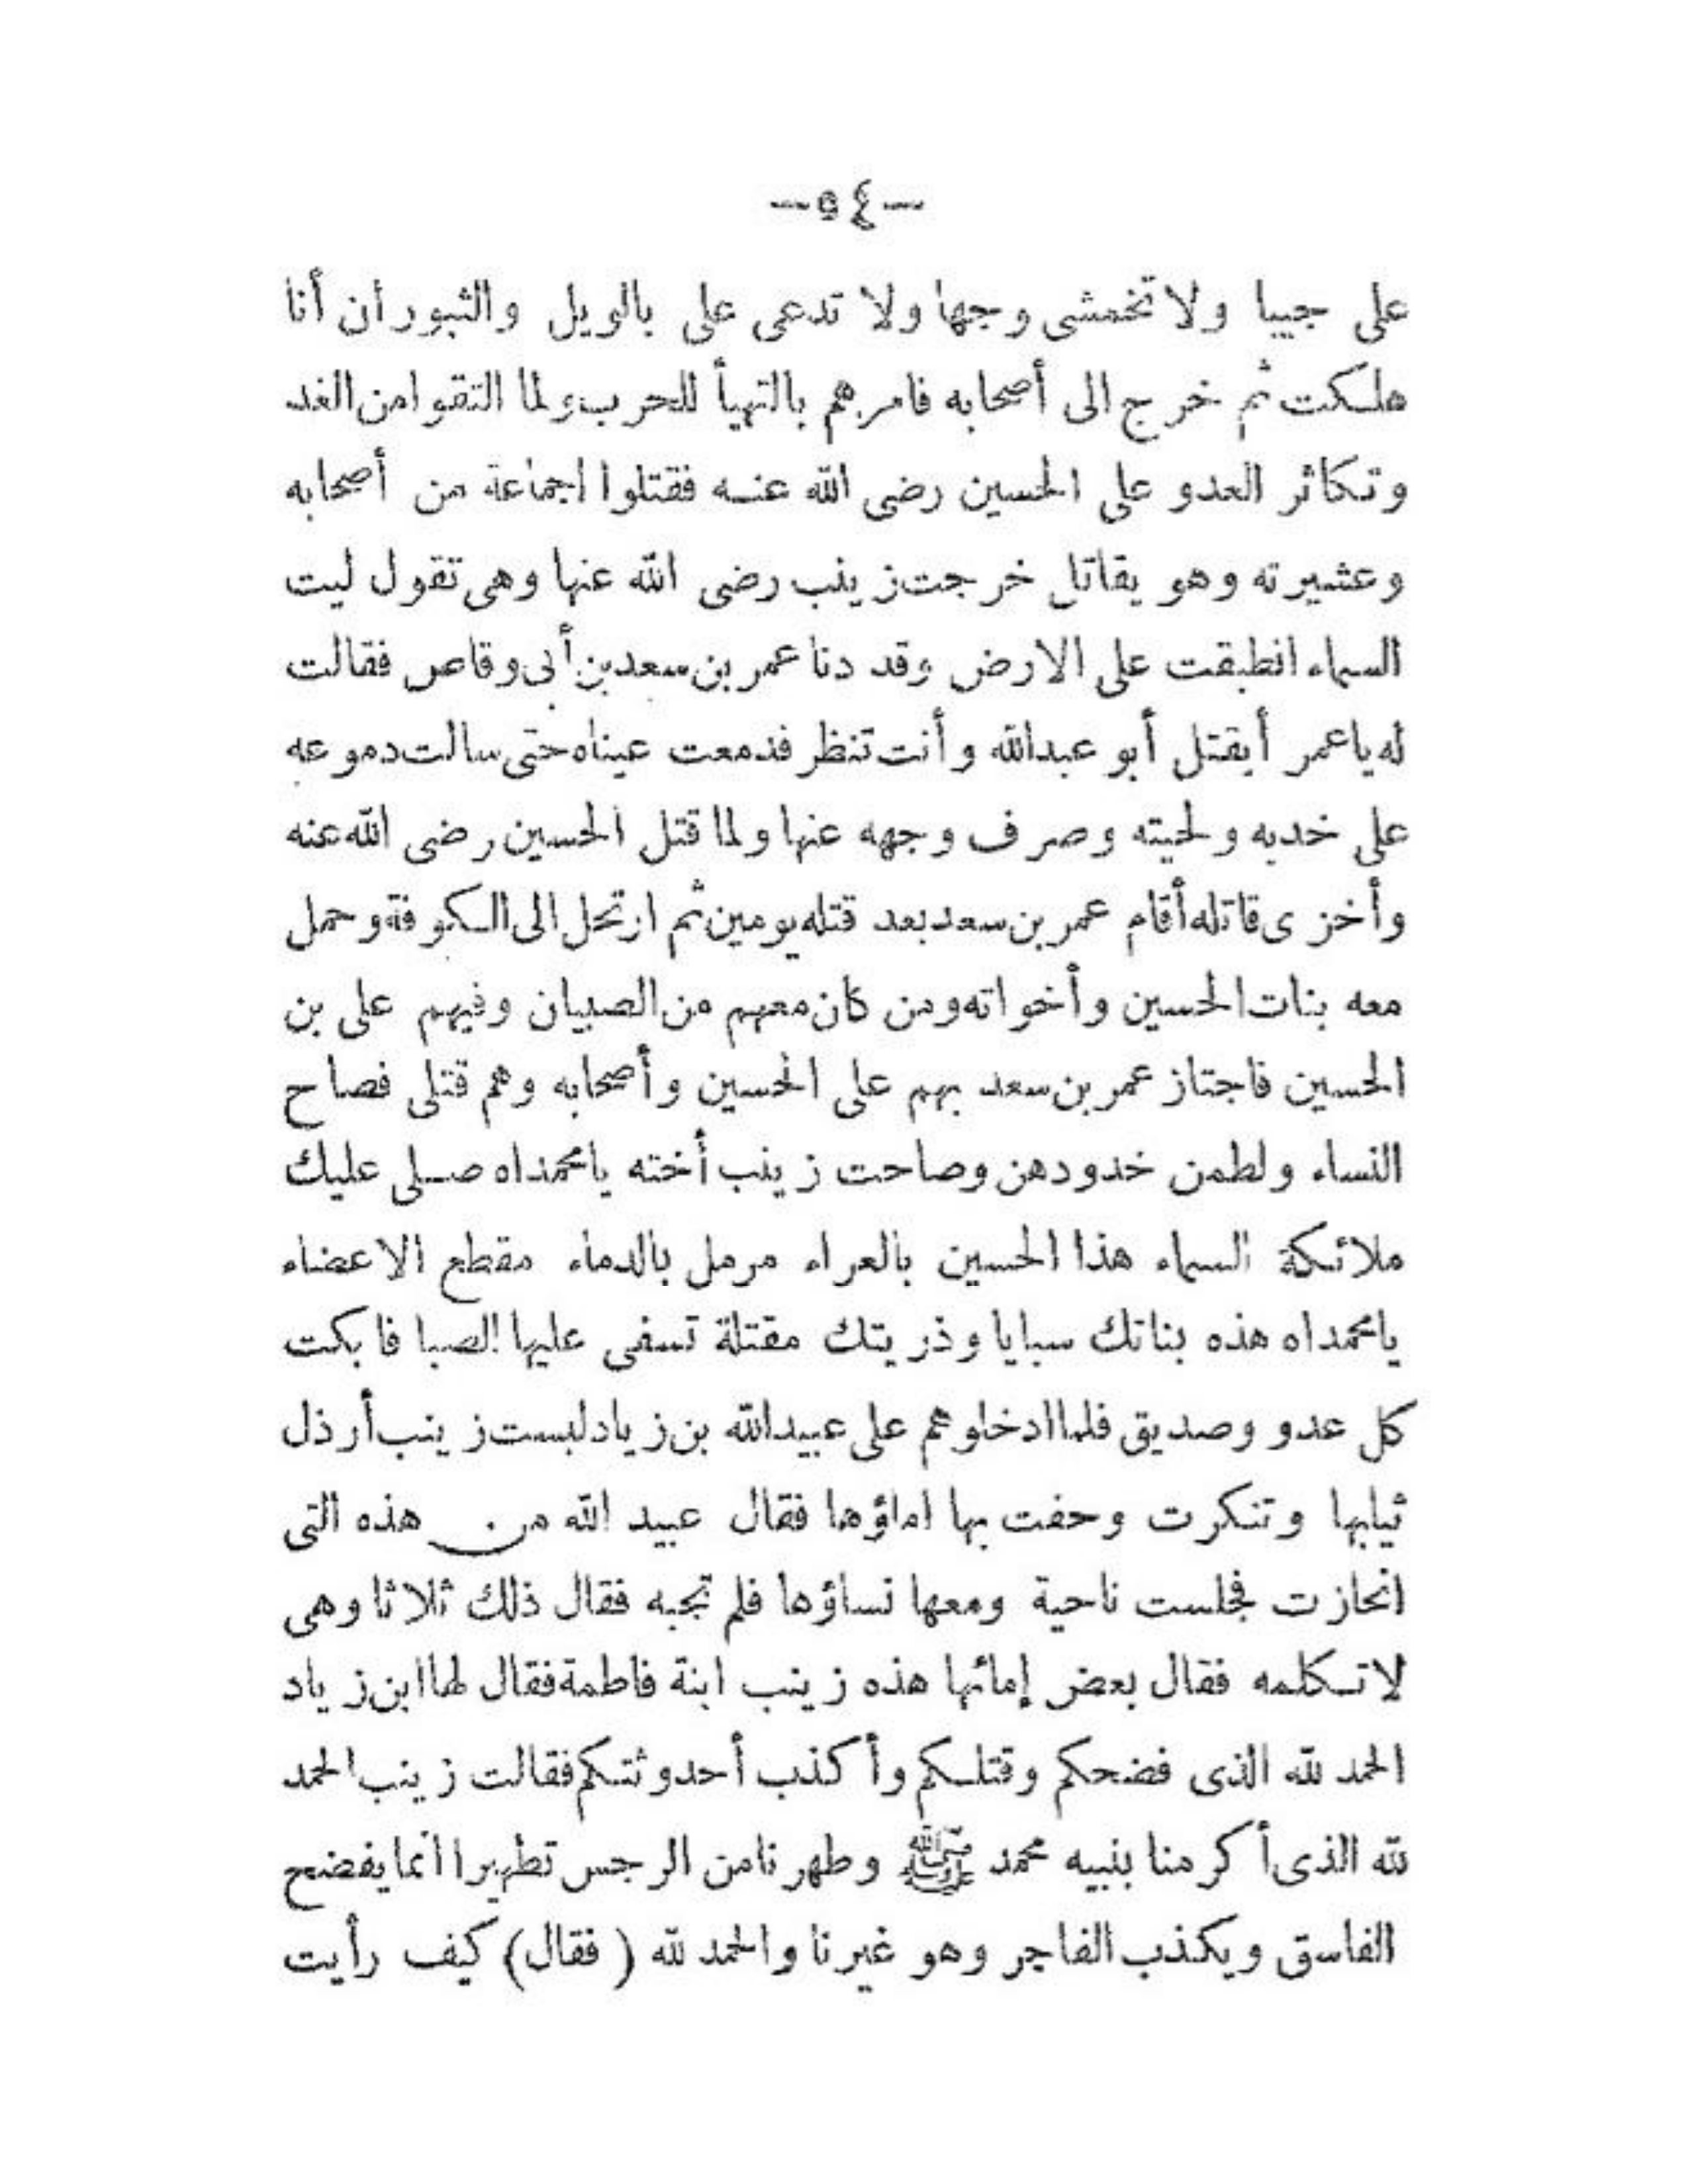 —٥٤—
على جيبا ولا تخمشى وجها ولا تدعى على بالويل والثبور ان أنا
هلكت ثم خرج الى أصحابه فامرهم بالتهيأ للحرب ولما التقوا من الغد
وتكاثر العدو على الحسين رضى الله عنه فقتلوا اجماعة من أصحابه
وعشيرته وهو يقاتل خرجت زينب رضى الله عنها وهى تقول ليت
السماء انطبقت على الارض وقد دنا عمر بن سعد بن أبى وقاص فقالت
له ياعمر أيقتل أبو عبدالله وأنت تنظر فدمعت عيناه حتى سالت دموعه
على خديه ولحيته وصرف وجهه عنها ولما قتل الحسين رضى الله عنه
وأخزى قاتله أقام عمر بن سعد بعد قتله يومين ثم ارتحل الى الكوفة وحمل
معه بنات الحسين وأخواته ومن كان معهم من الصبيان وفيهم على بن
الحسين فاجتاز عمر بن سعد بهم على الحسين وأصحابه وهم قتلى فصاح
النساء ولطمن خدودهن وصاحت زينب أخته يامحمداه صلى عليك
ملائكة السماء هذا الحسين بالعراء مرمل بالدماء مقطع الاعضاء
يامحمداه هذه بناتك سبايا وذريتك مقتلة تسفى عليها الصبا فابكت
كل عدو وصديق فلما ادخلوهم على عبيدالله بن زياد لبست زينب أرذل
ثيابها وتنكرت وحفت بها اماؤها فقال عبيد الله من هذه التى
انحازت فجلست ناحية ومعها نساؤها فلم تجبه فقال ذلك ثلاثا وهى
لاتكلمه فقال بعض إمائها هذه زينب ابنة فاطمة فقال لها ابن زياد
الحمد لله الذى فضحكم وقتلكم وأكذب أحدوثتكم فقالت زينب الحمد
لله الذى أكرمنا بنبيه محمد ﷺ وطهرنا من الرجس تطهيرا انما يفضح
الفاسق ويكذب الفاجر وهو غيرنا والحمد لله (فقال) كيف رأيت